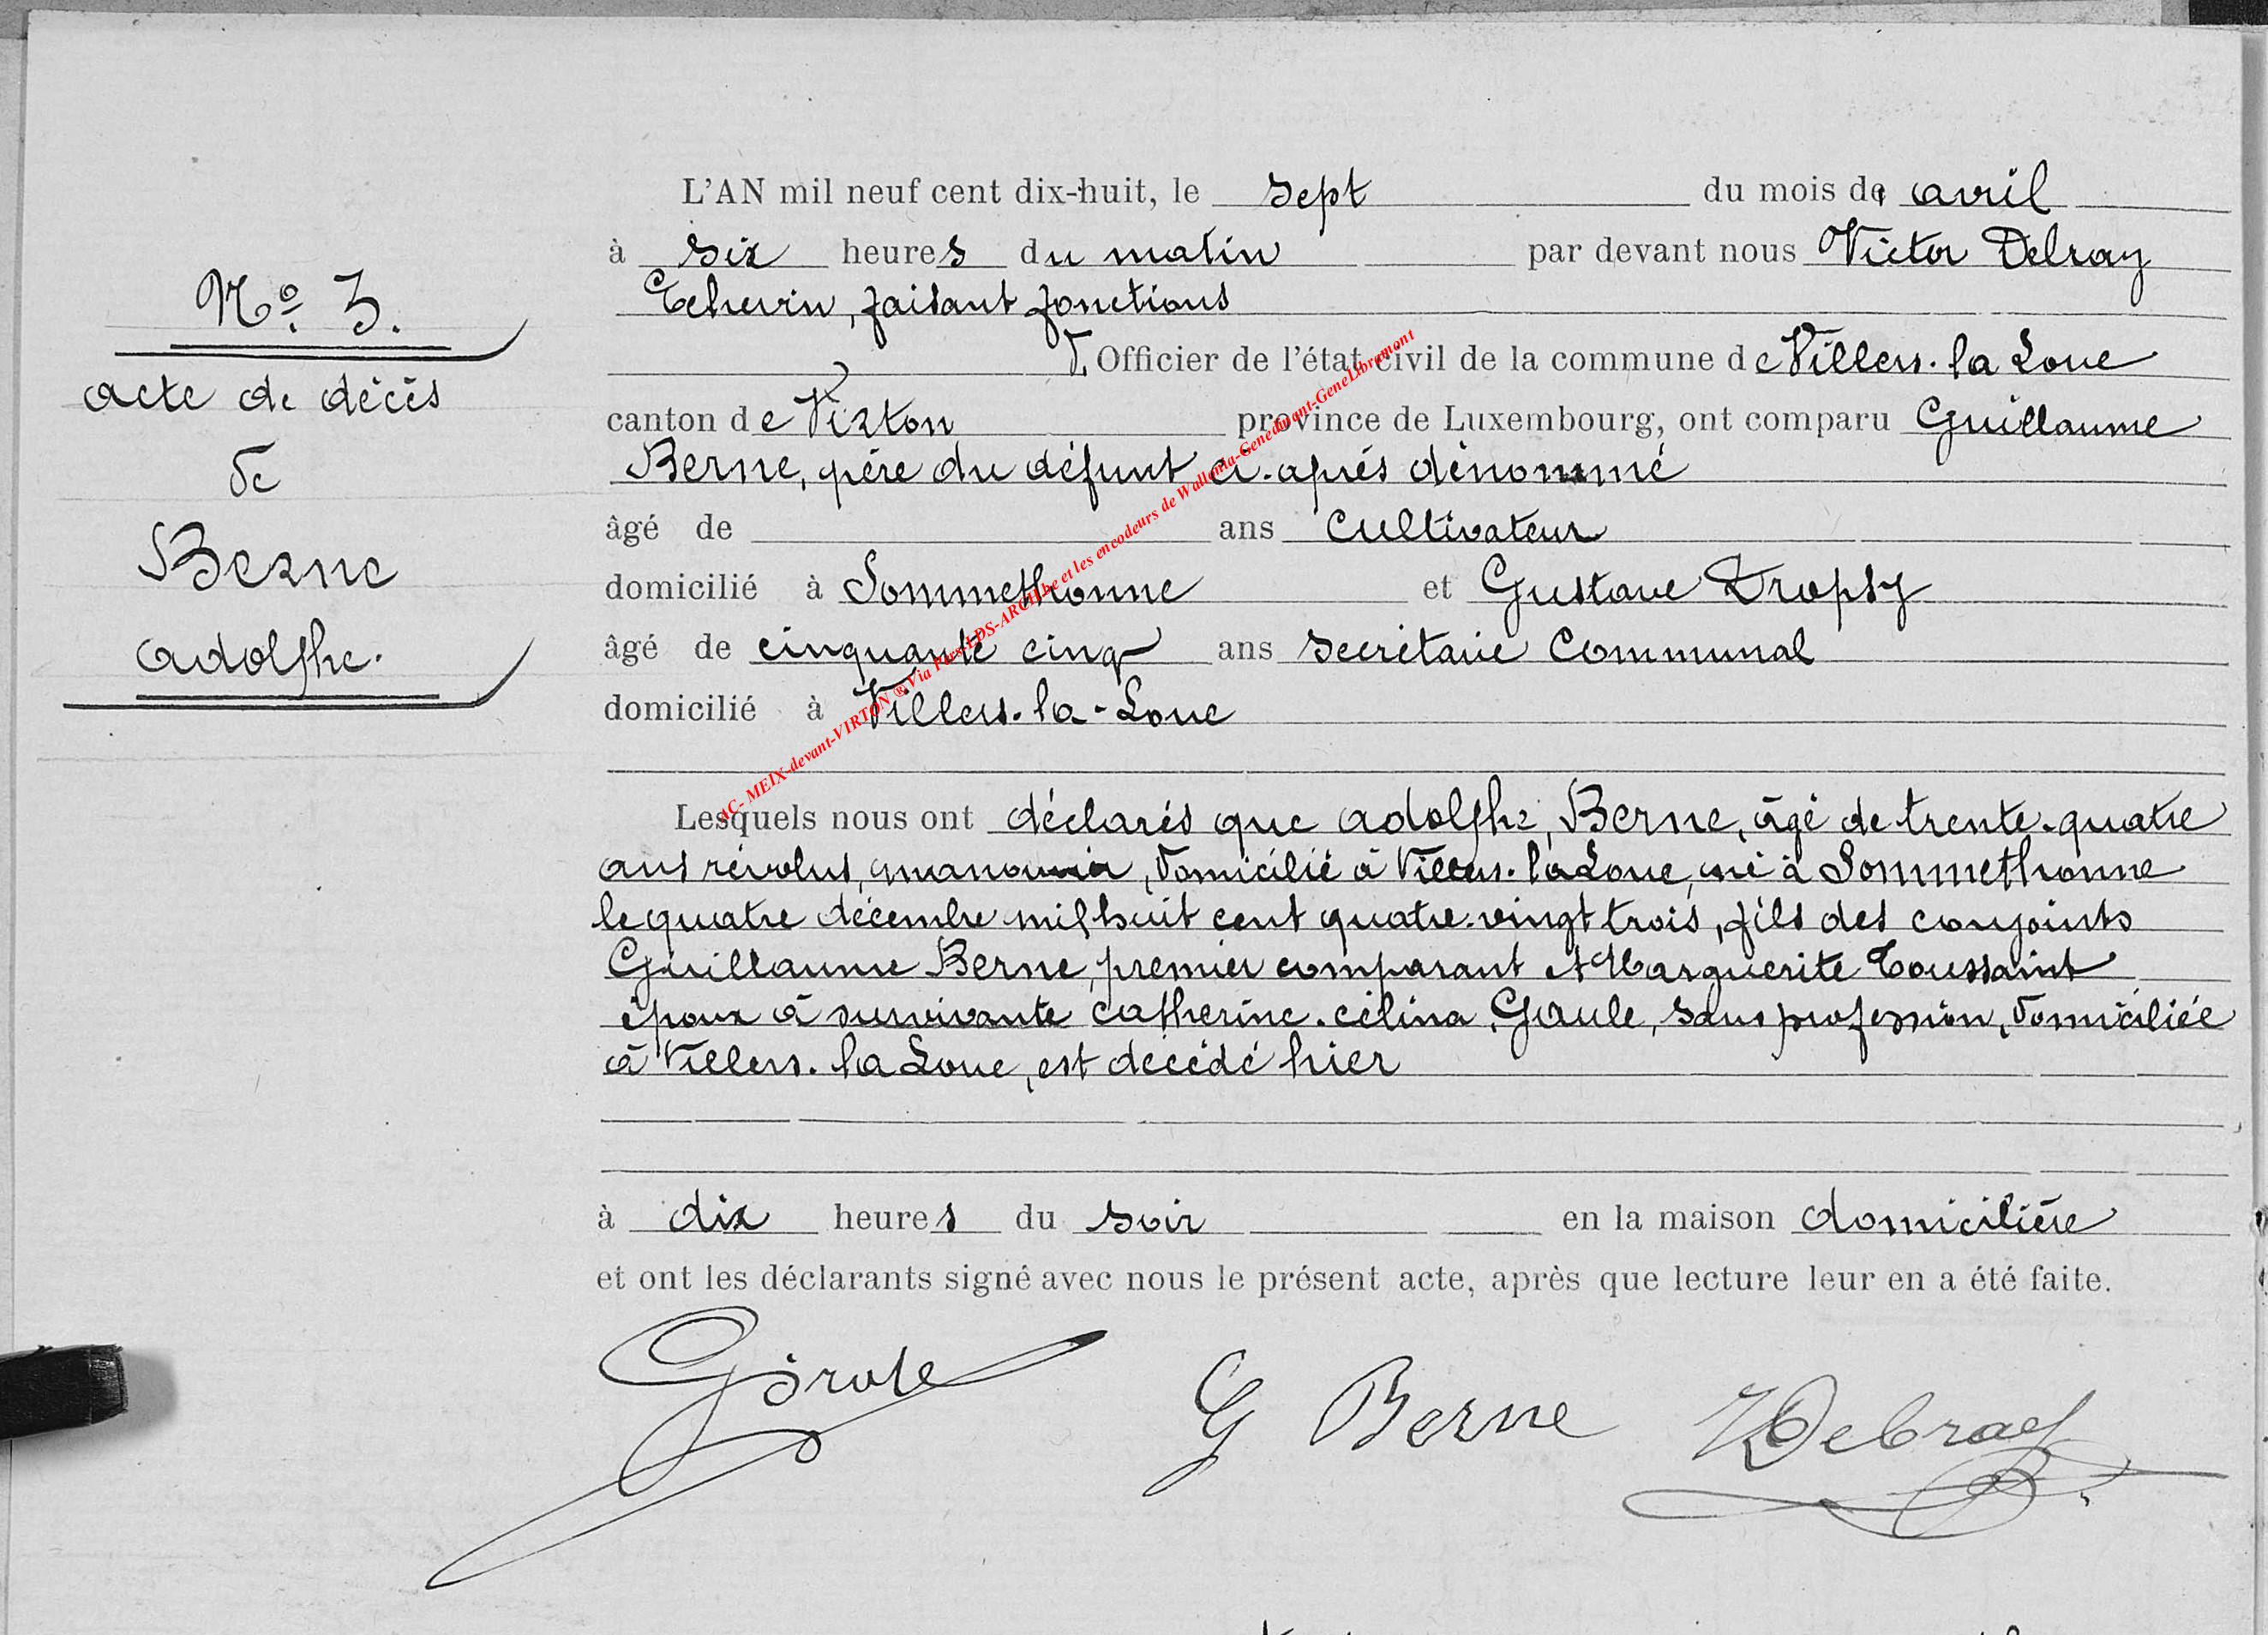 L'AN mil neuf cent dix-huit, le sept du mois de avril
à six heures du matin par devant nous Victor Debray
Echevin, faisant fonctions
d'Officier de l'état civil de la commune de Villers-la Loue
canton de Virton province de Luxembourg, ont comparu Guillaume
Berne, père du défunt ci-après dénommé
âgé de ans cultivateur
domicilié à Sommethonne et Gustave Dropsy
âgé de cinquante cinq ans secrétaire communal
domicilié à Villers-la-Loue
No 3.
acte de décès
de
Berne
adolphe.
Lesquels nous ont déclarés que adolphe, Berne, âgé de trente-quatre
ans révolus, domicilié à Villers-la Loue, né à Sommethonne
le quatre décembre mil huit cent quatre-vingt trois, fils des conjoints
Guillaume Berne, premier comparant et Marguerite Toussaint
époux à survivante catherine-célina, Gaule, sans profession, domiciliée
à Villers-la Loue, est décédé hier
à dix heures du soir en la maison domicilière
et ont les déclarants signé avec nous le présent acte, après que lecture leur en a été faite.
G Berne VDebray
AC- MEIX-devant-VIRTON ® Via Pers-LDS-ARCH.be et les encodeurs de Wallonia-Genedinant-GeneLibramont